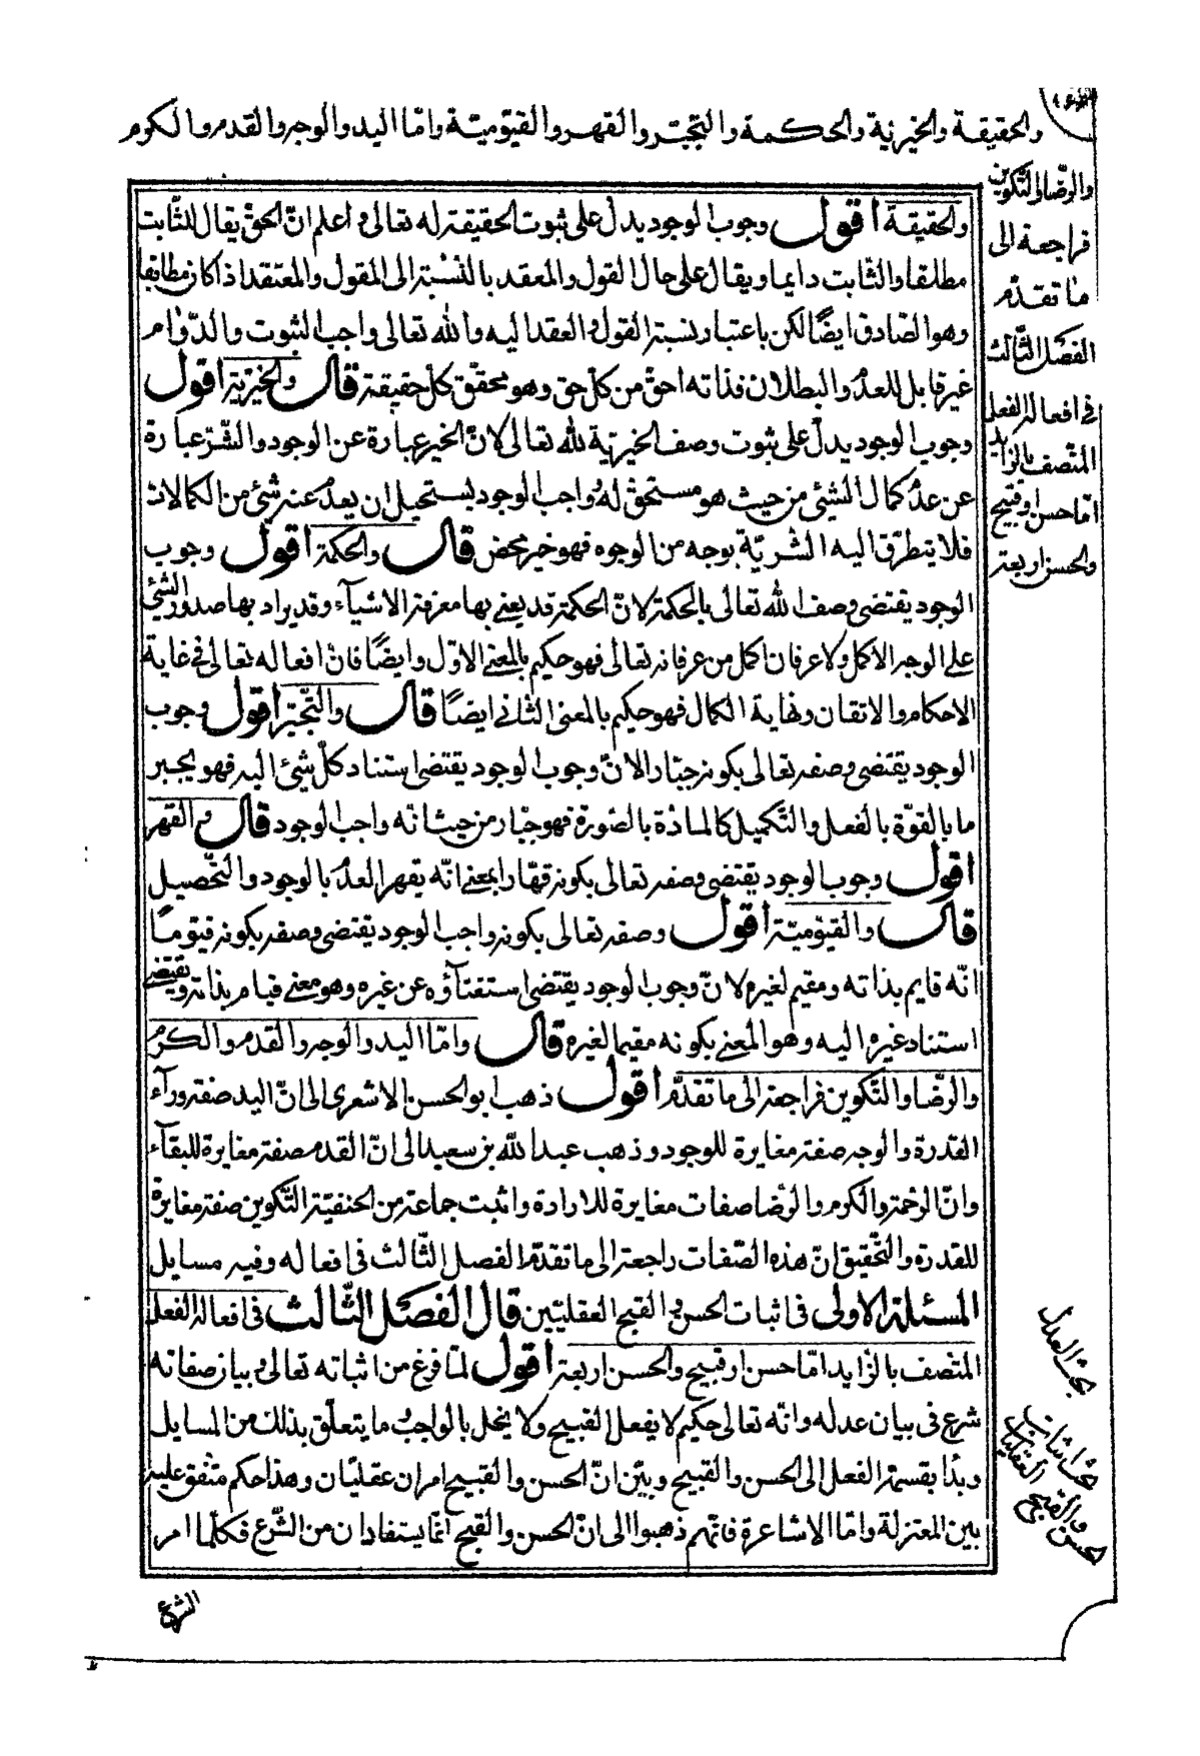 والحقيقة والخيرية والحكمة والتجبّر والقهر والقيّوميّة وامّا اليد والوجه والقدم والكرم
والرّضا والتّكوين
فراجعة الى
ما تقدّم
الفصل الثّالث
فى افعاله الفعل
المتّصف بالزّايد
امّا حسن او قبيح
والحسن اربعة
والحقيقة اقول وجوب الوجود يدلّ على ثبوت الحقيقة له تعالى و اعلم انّ الحقّ يقال للثّابت
مطلقا والثّابت دايما ويقال على حال القول والعقد بالنّسبة الى المقول والمعتقد اذا كان مطابقا
وهو الصّادق ايضًا لكن باعتبار نسبة القول و العقد اليه والله تعالى واجب الثبوت والدّوام
غير قابل للعدم والبطلان فذاته احقّ من كلّ حق وهو محقّق كلّ حقيقة قال والخيريّة اقول
وجوب الوجود يدلّ على ثبوت وصف الخيريّة لله تعالى لانّ الخير عبارة عن الوجود والشّرّ عبارة
عن عدم كمال الشئ من حيث هو مستحقّ له و واجب الوجود يستحيل ان يعدم عنه شئ من الكمالات
فلا يتطرّق اليه الشّريّة بوجه من الوجوه فهو خير محض قال والحكمة اقول وجوب
الوجود يقتضى وصف الله تعالى بالحكمة لانّ الحكمة قد يعنى بها معرفة الاشيآء وقد يراد بها صدور الشئ
على الوجه الاكمل ولا عرفان اكمل من عرفانه تعالى فهو حكيم بالمعنى الاوّل وايضًا فانّ افعاله تعالى فى غاية
الاحكام والاتقان ونهاية الكمال فهو حكيم بالمعنى الثانى ايضًا قال والتّجبّر اقول وجوب
الوجود يقتضى وصفه تعالى بكونه جبّارا لانّ وجوب الوجود يقتضى استناد كلّ شئ اليه فهو يجبر
ما بالقوّة بالفعل والتّكميل كالمادّة بالصّورة فهو جبّار من حيث انّه واجب الوجود قال والقهر
اقول وجوب الوجود يقتضى وصفه تعالى بكونه قهّارا بمعنى انّه يقهر العدم بالوجود والتّحصيل
قال والقيّوميّة اقول وصفه تعالى بكونه واجب الوجود يقتضى وصفه بكونه قيّومًا
انّه قايم بذاته ومقيم لغيره لانّ وجوب الوجود يقتضى استغنآؤه عن غيره وهو معنى قيامه بذاته ويقتضى
استناد غيره اليه وهو المعنى بكونه مقيما لغيره قال وامّا اليد والوجه والقدم والكرم
والرّضا والتّكوين فراجعة الى ما تقدّم اقول ذهب ابو الحسن الاشعرى الى انّ اليد صفة ورآء
القدرة والوجه صفة مغايرة للوجود وذهب عبد الله بن سعيد الى انّ القدم صفة مغايرة للبقآء
وانّ الرّحمة والكرم والرّضا صفات مغايرة للارادة واثبت جماعة من الحنفيّة التّكوين صفة مغايرة
للقدرة والتّحقيق انّ هذه الصّفات راجعة الى ما تقدّم الفصل الثّالث فى افعاله وفيه مسايل
المسئلة الاولى فى اثبات الحسن و القبح العقليّين قال الفصل الثّالث فى افعاله الفعل
المتّصف بالزّايد امّا حسن او قبيح والحسن اربعة اقول لمّا فرغ من اثباته تعالى و بيان صفاته
شرع فى بيان عدله وانّه تعالى حكيم لا يفعل القبيح ولا يخلّ بالواجب و ما يتعلّق بذلك من المسايل
وبدأ بقسمة الفعل الى الحسن والقبيح وبيّن انّ الحسن والقبيح امران عقليّان وهذا حكم متّفق عليه
بين المعتزلة وامّا الاشاعرة فانّهم ذهبوا الى انّ الحسن والقبح انّما يستفادان من الشّرع فكلّما امر
بحث العدل
بحث اثبات
الحسن والقبح العقليين
الشرع